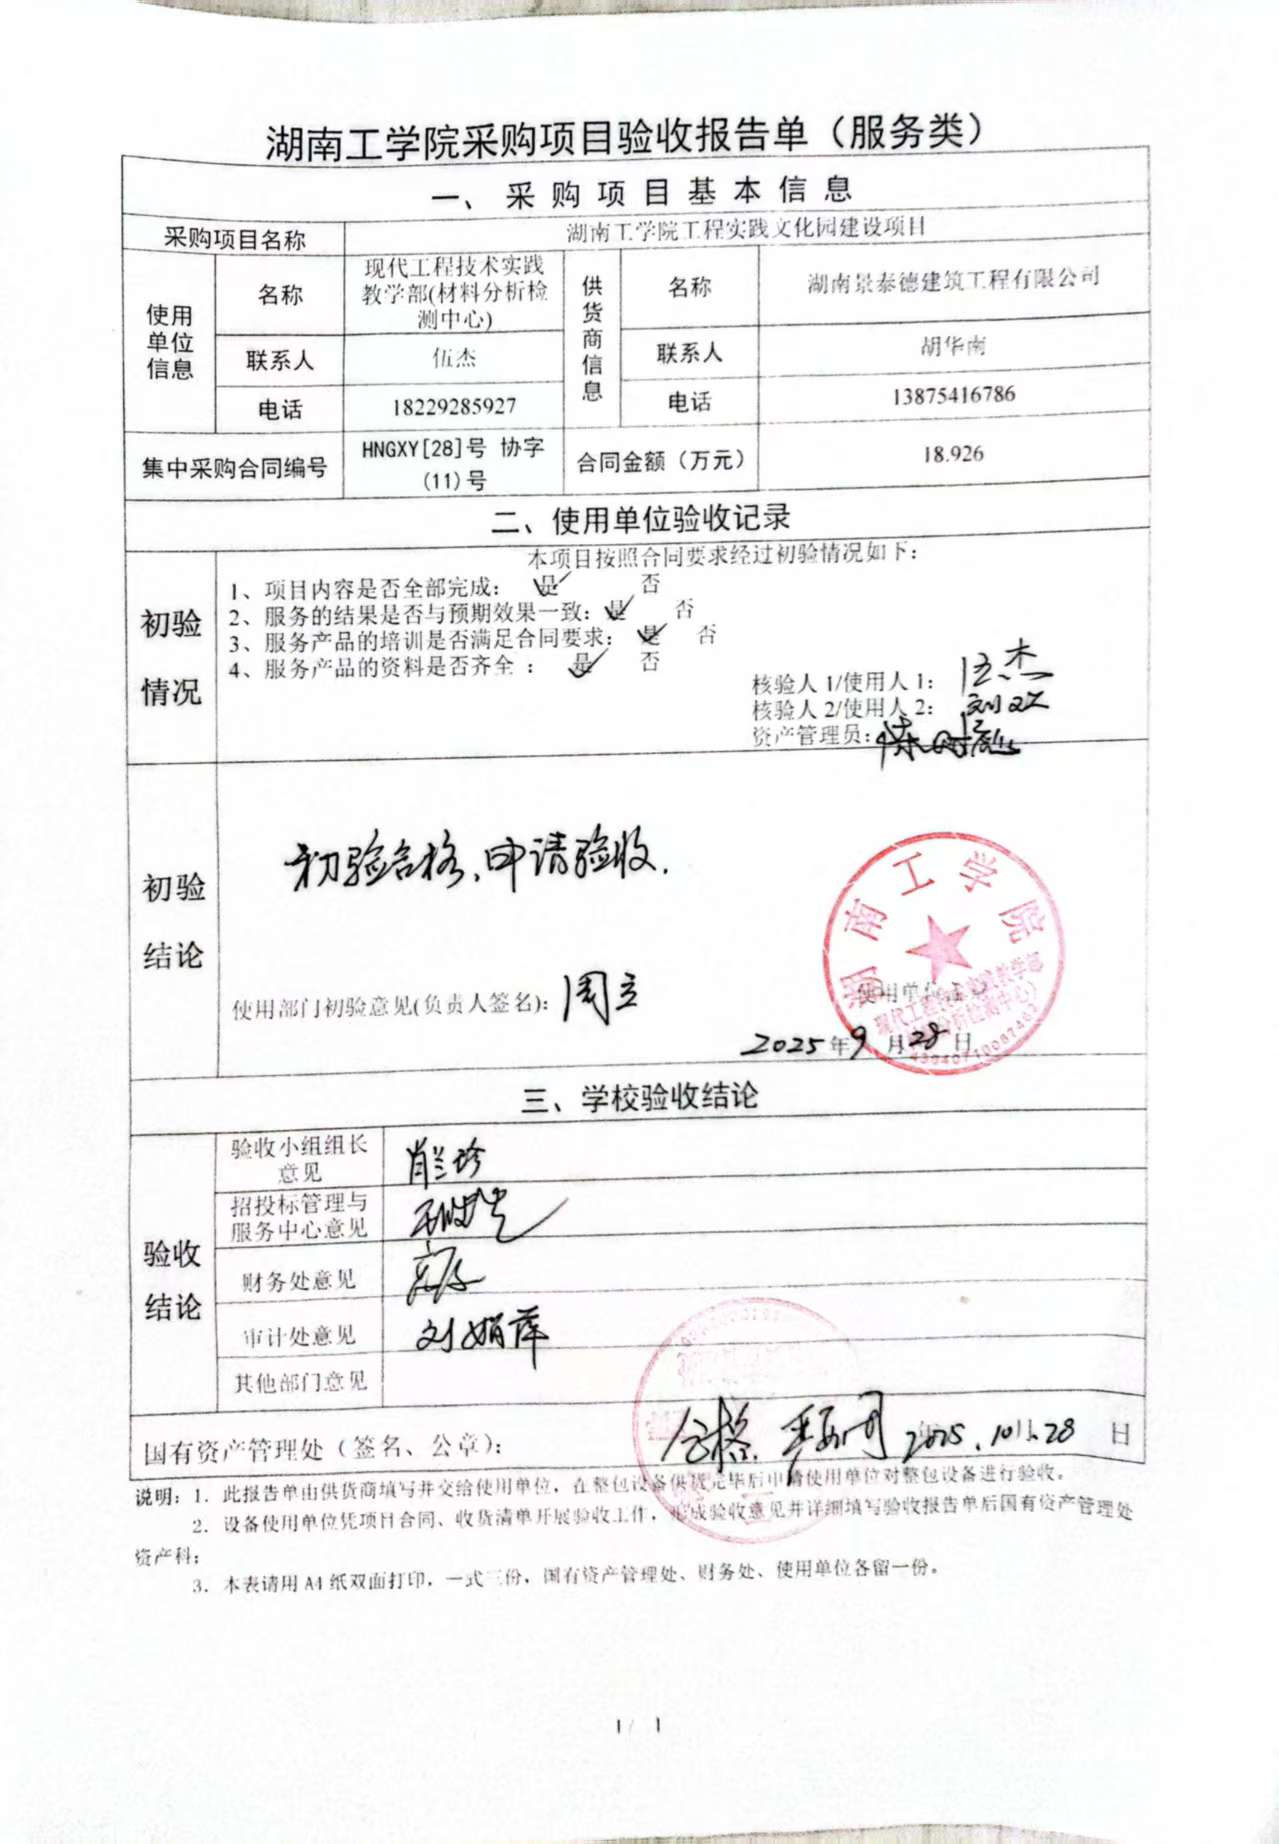 湖南工学院采购项目验收报告单（服务类）
一、采购项目基本信息
采购项目名称 湖南工学院工程实践文化园建设项目
使用单位信息
名称 现代工程技术实践教学部(材料分析检测中心)
联系人 伍杰
电话 18229285927
供货商信息
名称 湖南景泰德建筑工程有限公司
联系人 胡华南
电话 13875416786
集中采购合同编号 HNGXY[28]号 协字(11)号
合同金额（万元） 18.926
二、使用单位验收记录
初验情况
本项目按照合同要求经过初验情况如下：
1、项目内容是否全部完成： 是✓ 否
2、服务的结果是否与预期效果一致：是✓ 否
3、服务产品的培训是否满足合同要求： 是✓ 否
4、服务产品的资料是否齐全 ： 是✓ 否
核验人 1/使用人 1： 伍杰
核验人 2/使用人 2：
资产管理员：
初验结论
初验合格、申请验收.
使用部门初验意见(负责人签名)： 周立
湖南工学院
现代工程技术实践教学部
(材料分析检测中心)
2025年9月28日
三、学校验收结论
验收结论
验收小组组长意见 肖兰珍
招投标管理与服务中心意见
财务处意见
审计处意见 刘娟萍
其他部门意见
国有资产管理处（签名、公章）： 合格. 2025.10.28 日
说明：1. 此报告单由供货商填写并交给使用单位，在整包设备供货完毕后申请使用单位对整包设备进行验收。
2. 设备使用单位凭项目合同、收货清单开展验收工作，形成验收意见并详细填写验收报告单后国有资产管理处
资产科；
3. 本表请用 A4 纸双面打印，一式三份，国有资产管理处、财务处、使用单位各留一份。
1 / 1